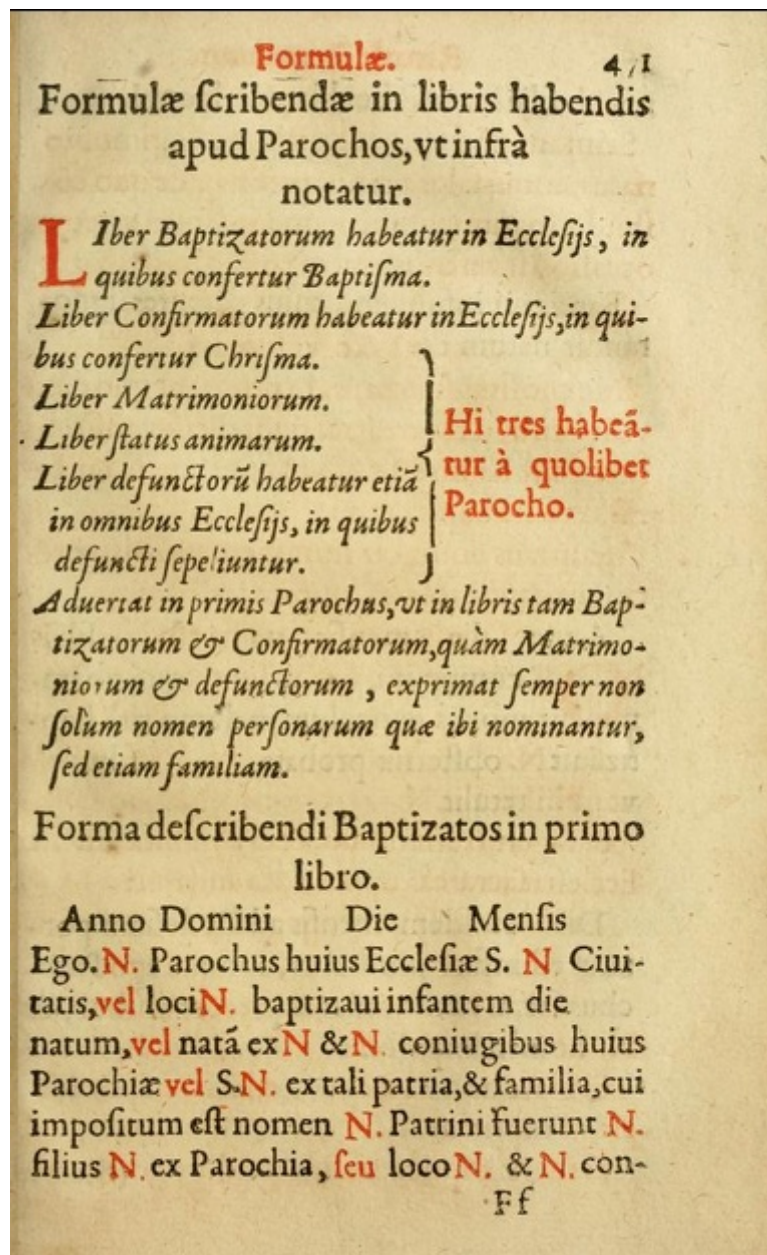 Formulæ. 4,1
Formulæ ſcribendæ in libris habendis
apud Parochos, vt infrà
notatur.
LIber Baptizatorum habeatur in Eccleſijs, in
quibus confertur Baptiſma.
Liber Confirmatorum habeatur in Eccleſijs, in qui-
bus confertur Chriſma.
Liber Matrimoniorum.
Liber ſtatus animarum.
Liber defunctorũ habeatur etiã
in omnibus Eccleſijs, in quibus
defuncti ſepeliuntur.
Hi tres habeã-
tur à quolibet
Parocho.
Aduertat in primis Parochus, vt in libris tam Bap-
tizatorum & Confirmatorum, quàm Matrimo-
niorum & defunctorum, exprimat ſemper non
ſolum nomen perſonarum quæ ibi nominantur,
ſed etiam familiam.
Forma deſcribendi Baptizatos in primo
libro.
Anno Domini Die Menſis
Ego. N. Parochus huius Eccleſiæ S. N Ciui-
tatis, vel loci N. baptizaui infantem die
natum, vel natã ex N & N. coniugibus huius
Parochiæ vel S. N. ex tali patria, & familia, cui
impoſitum eſt nomen N. Patrini fuerunt N.
filius N. ex Parochia, ſeu loco N. & N. con-
Ff